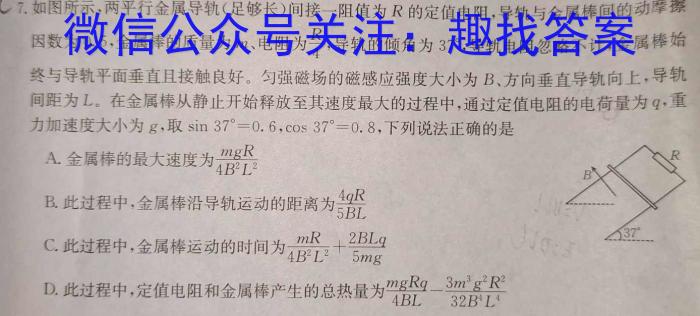 7. 如图所示,两平行金属导轨(足够长)间接一阻值为 R 的定值电阻,导轨与金属棒间的动摩擦
因数
微信公众号关注:趣找答案
金属棒的质量为 电阻为 导轨的倾角为 37 金属棒始
终与导轨平面垂直且接触良好。匀强磁场的磁感应强度大小为 B、方向垂直导轨向上,导轨
间距为 L。在金属棒从静止开始释放至其速度最大的过程中,通过定值电阻的电荷量为 q,重
力加速度大小为 g,取 sin 37°=0.6,cos 37°=0.8,下列说法正确的是
A. 金属棒的最大速度为 mgR/4B²L²
B. 此过程中,金属棒沿导轨运动的距离为 4qR/5BL
C. 此过程中,金属棒运动的时间为 mR/4B²L² + 2BLq/5mg
D. 此过程中,定值电阻和金属棒产生的总热量为 mgRq/4BL − 3m³g²R²/32B⁴L⁴
B
R
37°